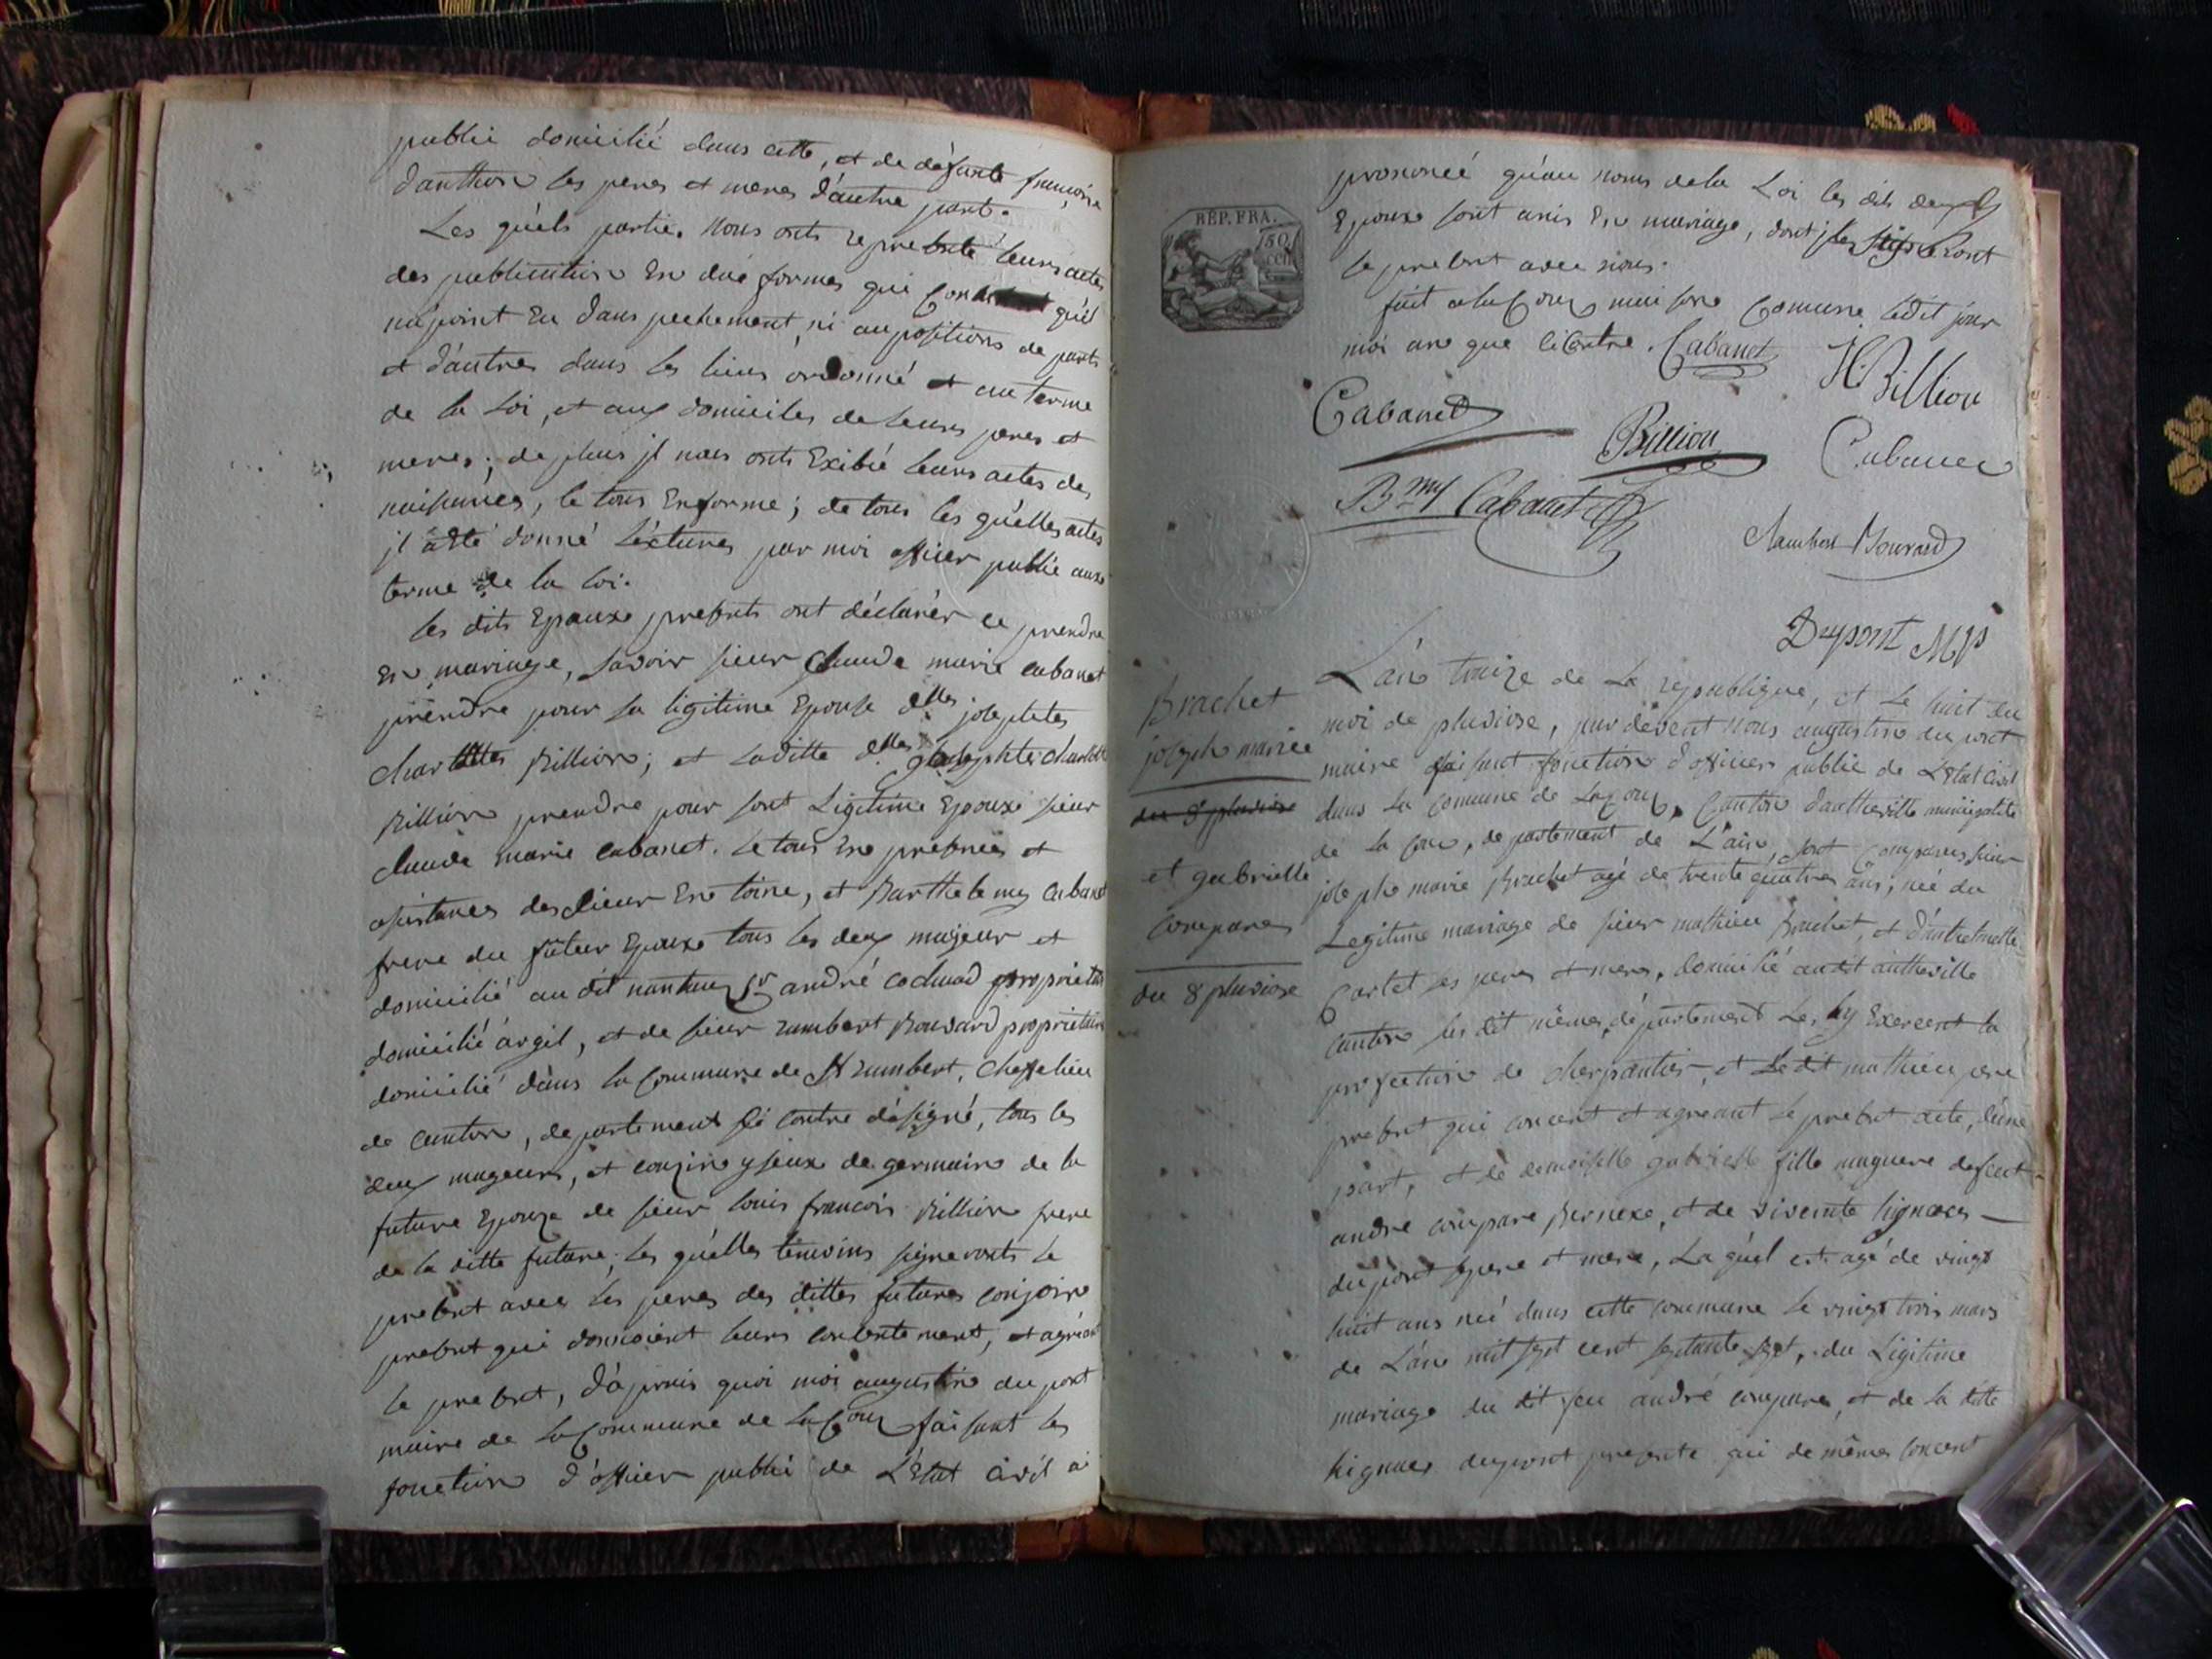 public domicilié dans cette, et de défunte françoise
danthon ses peres et meres d'autre part.
Les quels partie. nous onts represente leurs actes
des publication En due formes qui qu'il
na point Eu dans pechement ni au positions de parts
et d'autres dans les lieus ordonné et au terme
de la Loi, et aux domiciles de leurs peres et
meres; de plus jl nous onts Exibié leurs actes des
naissances, le tous En forme; de tous les quelles actes
jl a été donné Léctures par moi officier public aux
terme de la Loi.
les dits Epouxe presents ont déclarér ce prendre
En mariage, savoir sieur Claude marie cabanet
prendre pour sa ligitime Epouse dlles josephtes
charlottes Billion; et laditte dlles josephte charlotte
Billion prendre pour sont Ligitime Epouxe sieur
claude marie cabanet. le tous En presences et
asistances des sieur En toine, et Barthelemy Cabanet
frere du futeur Epouxe tous les deux majeur et
domicilié au dit nantuax Sr andré cochard proprietaire
domicilié argil, et de sieur rambert Bouvard proprietaire
domicilié dans la Commune de St rambert, cheffelieu
de canton, departement si contre désigné, tous les
deux mageurs, et couzin ysseux de germain de la
future Epouze de sieur louis francois Billion frere
de la ditte future, les quelles temoins signeronts le
present avec les peres des dittes futures conjoins
present qui donnoient leurs consentement, et agréant
le present, d'aprais quoi moi augustin du port
maire de la Commune de la Coux faisant les
fonction d'officier public de L'Etat Civil ai
REP. FRA.
50
prononcé qu'au noms de la Loi les dits deux
Epouxe sont unis En mariage, dont
le present avec nous.
fait a la Coux maisons Comune ledit jour
moi an que si Contre. Cabanet
H. Billion
Cabanet
Billion
Cabanet
Bmy Cabanet
Rambert Bouvard
Dupont M
Brachet
joseph marie
du 8 pluviose
et gabrielle
compare
du 8 pluviose
L'an traize de La republique, et Le huit du
moi de pluviose, par devent nous augustin du port
maire faisant fonction d'officier public de L'Etat Civil
dans la Comune de La Coux, Canton d'autheville municipalité
de la Coux, departement de L'ain, sont Comparus sieur
joseph marie Brachet agé de trente quatres ans, né du
Legitime mariage de sieur mathieu Brachet, et
Cartet ses peres et meres, domicilié audit autheville
Canton les dit mêmes département Exercent la
profection de cherpantier, et Le dit mathieu pere
present qui concent et agreant le present acte, d'une
part, et de demoiselle gabrielle fille mageure defeut
andre compare et de vincente hignaces
du port pere et mere, La quel est agé de vingt
huit ans né dans cette commune le vingt trois mars
de L'an mil sept cent septante sept, du Ligitime
mariage du dit feu andré compare, et de la ditte
hignaces duport presente qui de mêmes concent